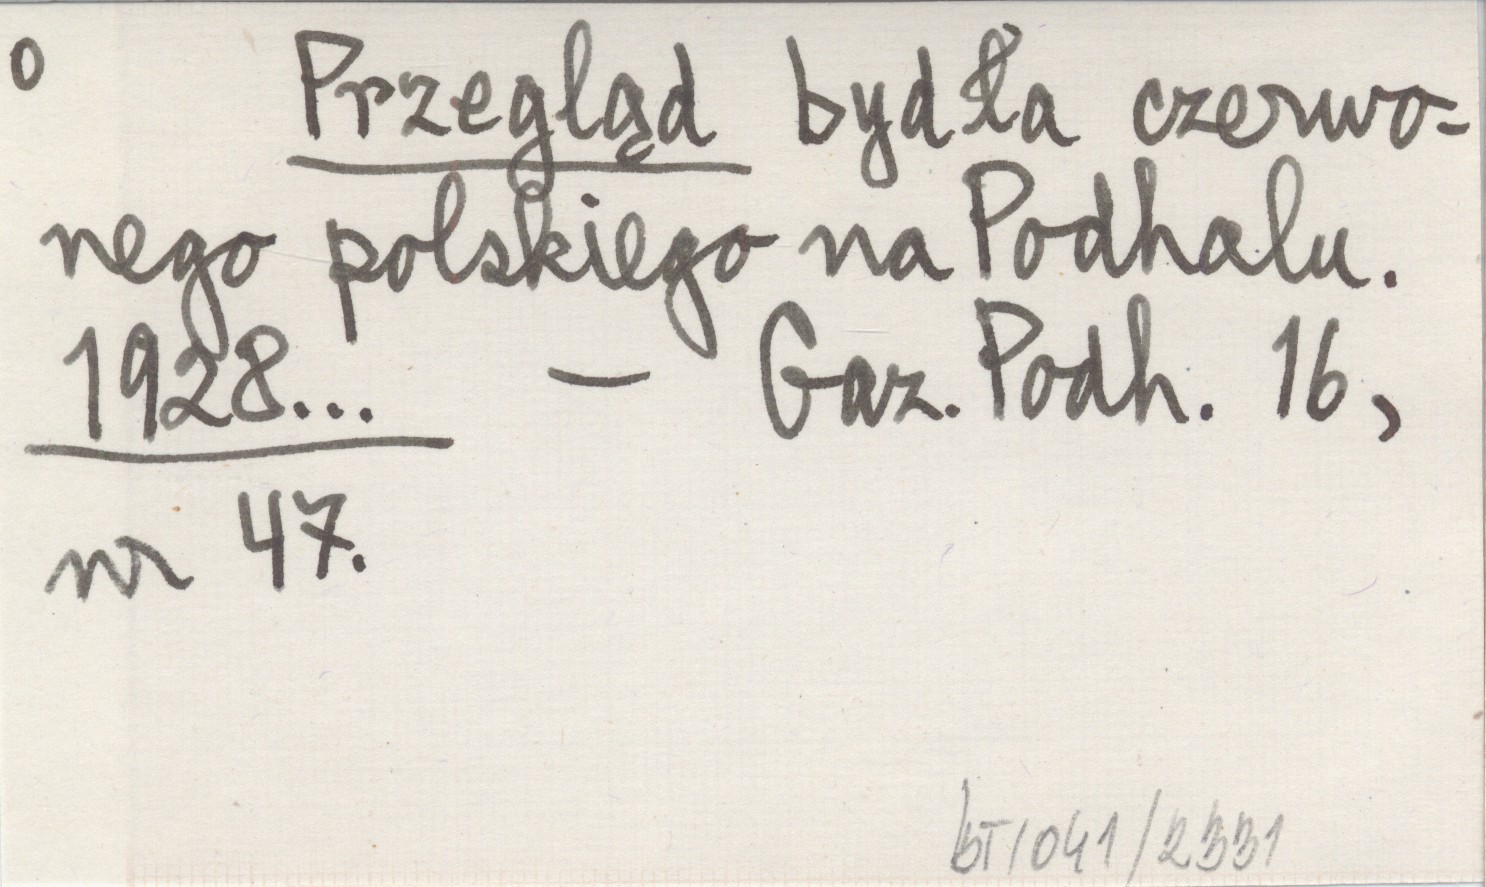 o Przegląd bydła czerwo=
nego polskiego na Podhalu.
1928... — Gaz. Podh. 16,
nr 47.
bT/041/2331